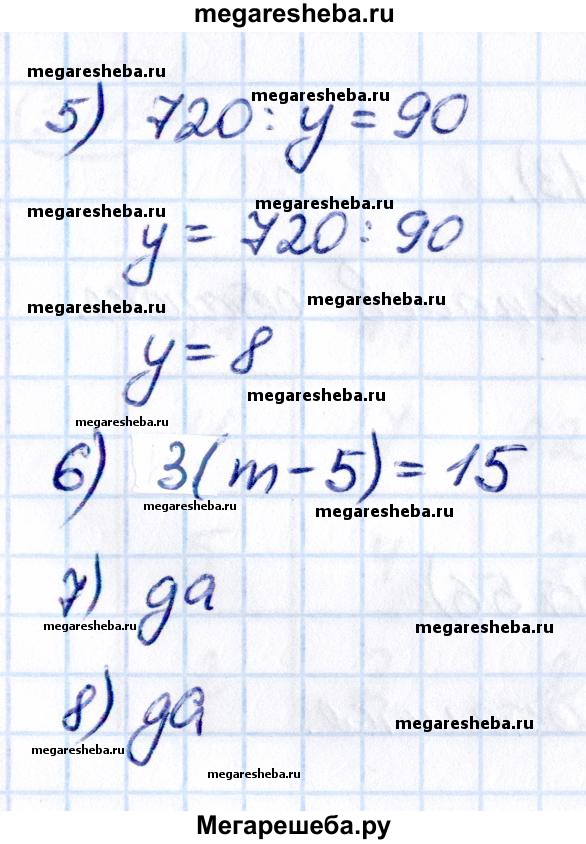 megaresheba.ru
megaresheba.ru
megaresheba.ru
5) 720 : y = 90
megaresheba.ru
megaresheba.ru
y = 720 : 90
megaresheba.ru
megaresheba.ru
y = 8
megaresheba.ru
megaresheba.ru
6) 3(m - 5) = 15
megaresheba.ru
megaresheba.ru
7) да
megaresheba.ru
megaresheba.ru
8) да
megaresheba.ru
megaresheba.ru
megaresheba.ru
Мегарешеба.ру